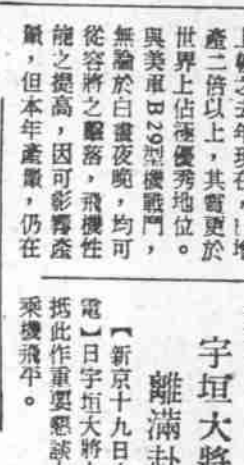 產二倍以上，其質更於
世界上佔極優秀地位。
與美軍B29型機戰鬥，
無論於白晝夜晚，均可
從容將之擊落，飛機性
能之提高，因可影響產
量，但本年產量，仍在
宇垣大將
離滿赴
【新京十九日
電】日宇垣大將
抵此作重要懇談
乘機飛平。